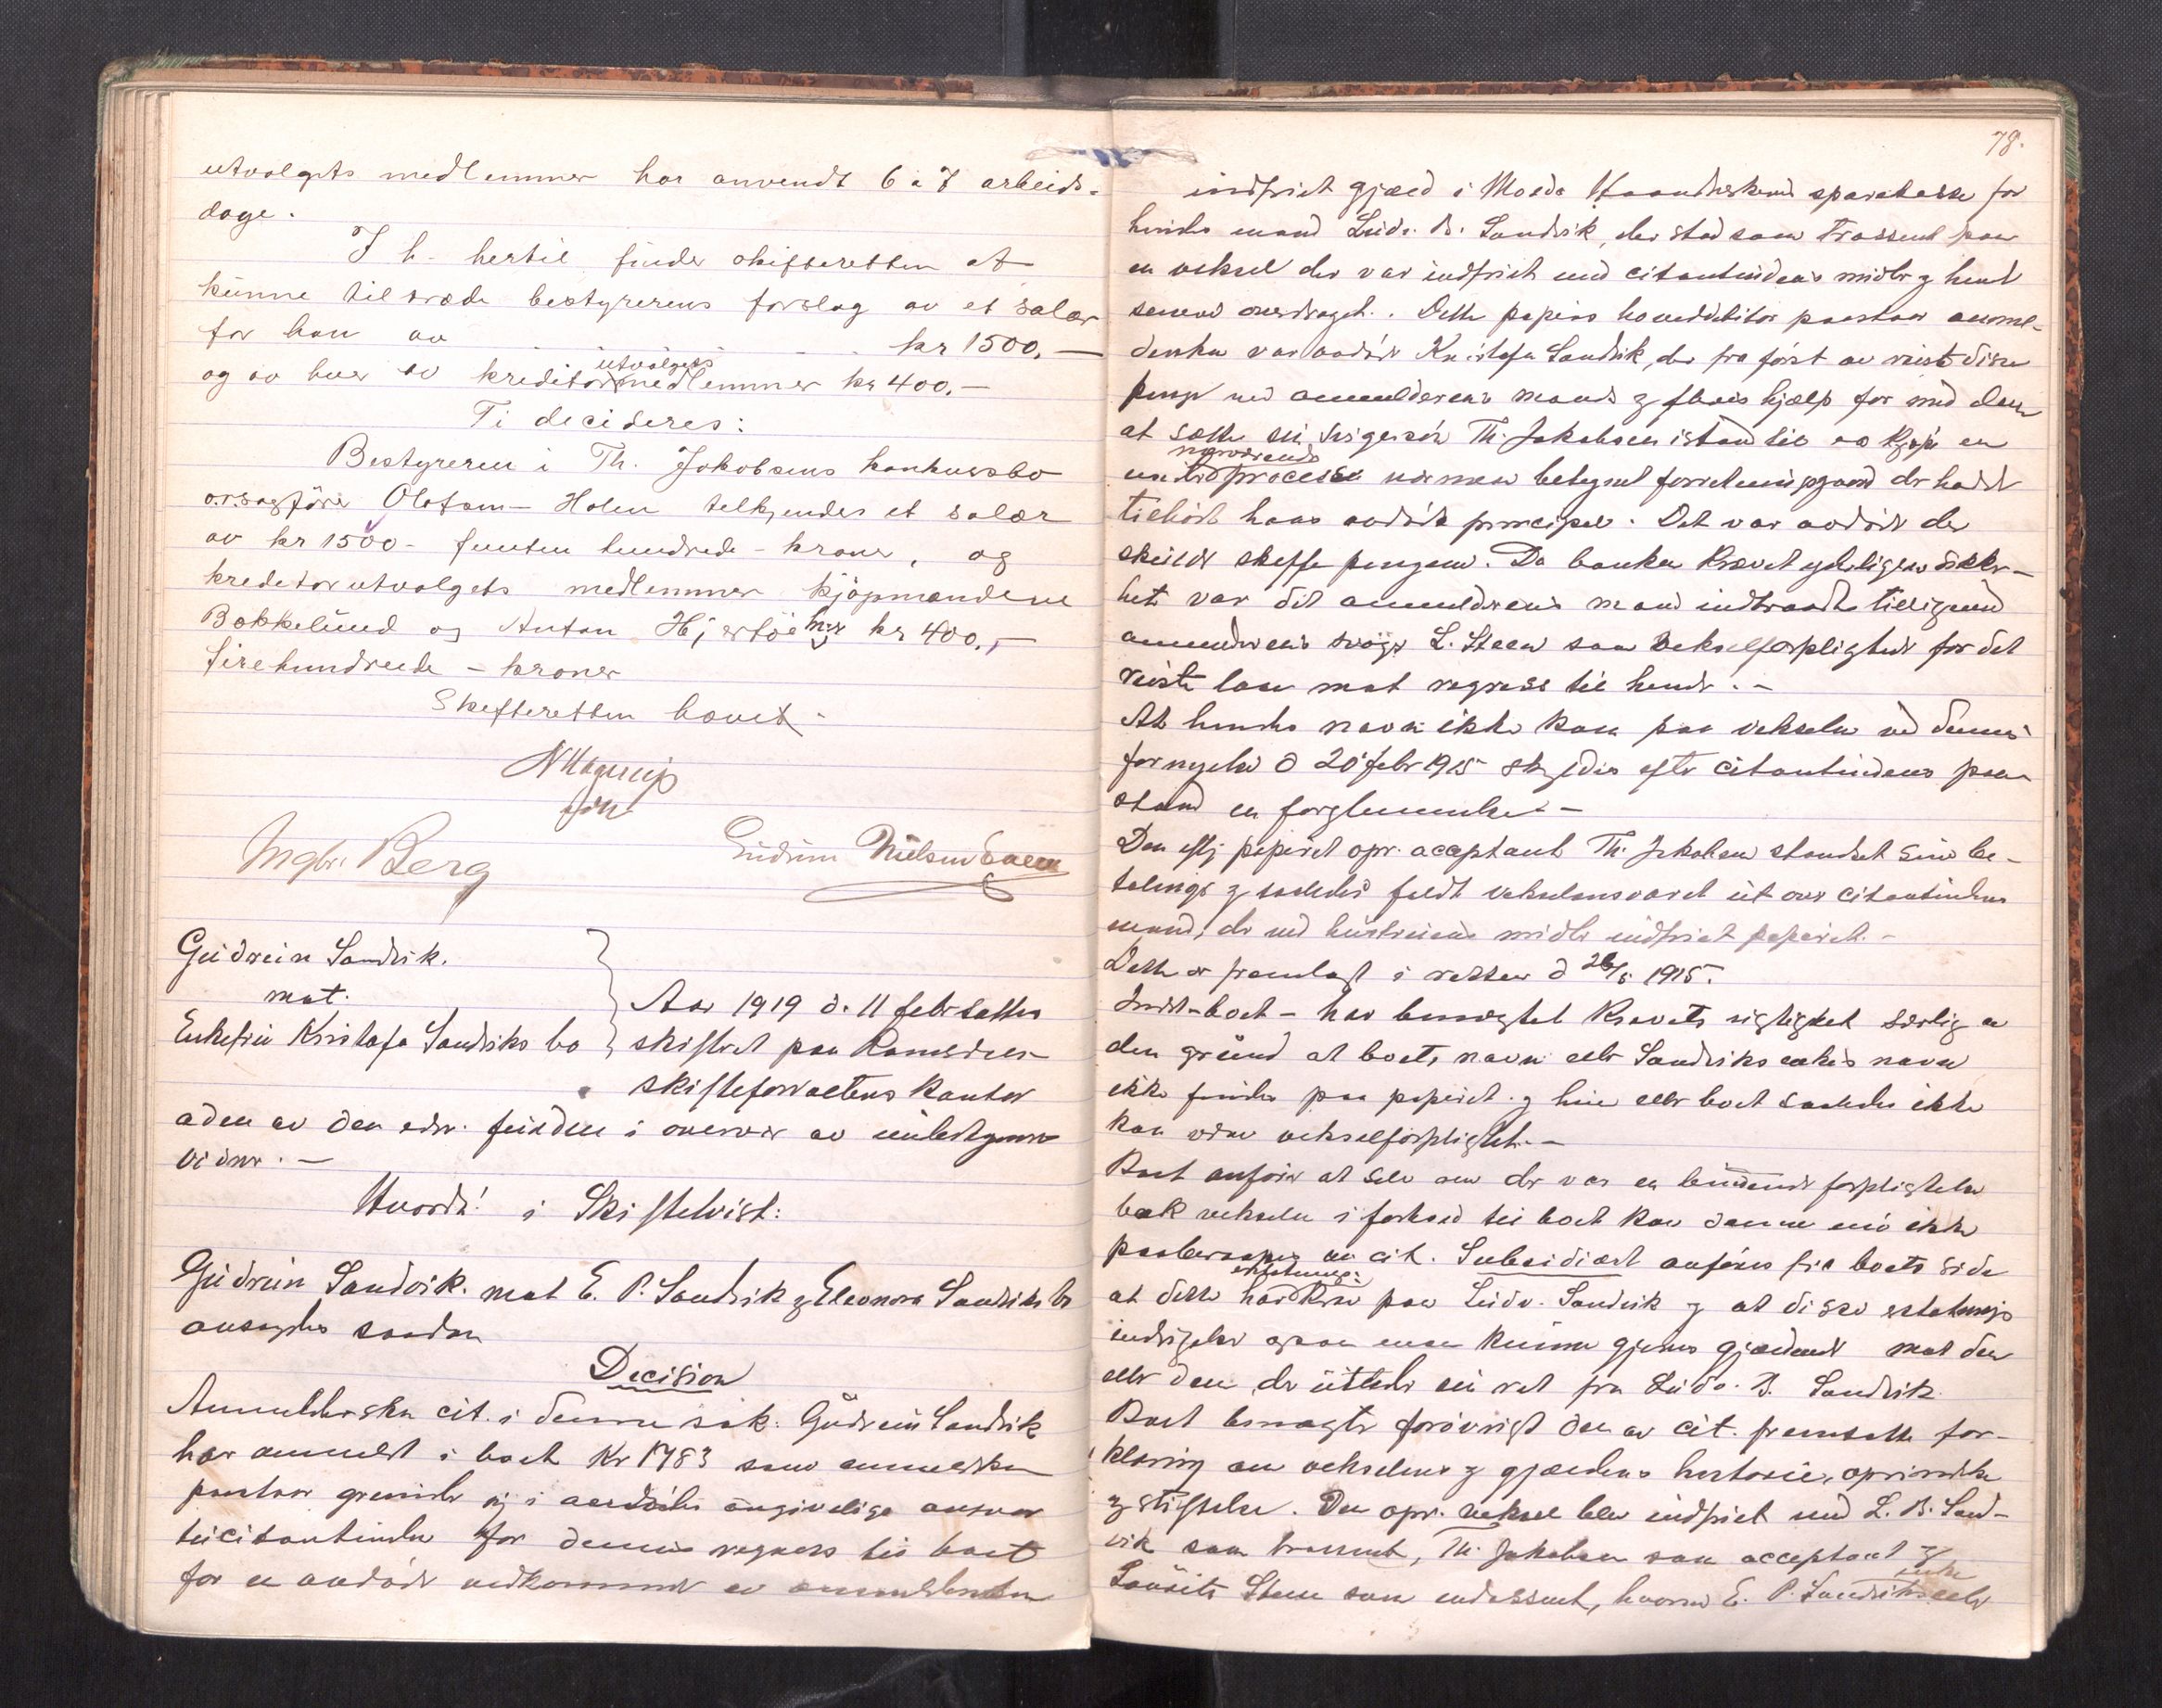 utvalgets medlemmer har anvendt 6 a 7 arbeids-
dage.
I h. hertil finder skifteretten at
kunne tilraade bestyrerens forslag av et salær
for ham av kr 1500,—
og av hver av kreditorutvalgets medlemmer kr 400.—
Ti decideres:
Bestyreren i Th. Jakobsens konkursbo
o.r.sagfører Olafsøn-Holm tilkjendes et salær
av kr 1500- femten hundrede - kroner, og
kreditorutvalgets medlemmer kjøpmændene
Bokkelund og Anton Hjertøe hver kr 400,-
firehundrede - kroner
Skifteretten hævet.
Ingbr. Berg
Gudrun Nielsen
Gudrun Sandvik.
mot
Enkefru Kristofa Sandviks bo
Aar 1919 d. 11 febr sattes
skifteret paa Romsdals
skifteforvalters kontor
aden av den edsv. i overvær av
vidner.—
Hvorda! i Skiftetvist:
Gudrun Sandvik mot E. P. Sandvik & Eleonora Sandviks bo
avsagdes saadan
Decision
Anmeldersken cit. i denne sak: Gudrun Sandvik
har anmeldt i boet Kr 1783 som anmeldersken
paastaar grunder sig i avdødes angivelige ansvar
citantinden for dennes regress til boet
for en avdøde vedkommende av anmeldersken
78.
indfriet gjæld i Molde Haandverkeres sparekasse for
hendes mand Ludv. B. Sandvik, der stod som trassent paa
en veksel der var indfriet med citantindens midler & hende
senere overdraget. Dette papirs hoveddebitor paastaar anmel-
dersken var avdøde Kristofa Sandvik, der fra først av reiste disse
penge ved anmelderens mands & fleres hjælp for med dem
at sætte sin svigersøn Th. Jakobsen istand til at kjøpe en
under nærværende proces nærmere betegnet forretningsgaard der hadde
tilhørt hans avdøde principal. Det var avdøde der
skulde skaffe pengene. Da banken krævet yderligere sikker-
het var det anmelderens mand indtraadte tillikemed
anmelderens svoger L. Steen som vekselforpligtede for det
reiste laan mot regress til hende.-
At hendes navn ikke kom paa vekselen ved dennes
fornyelse d 20 febr 1915 skyldes efter citantindens paa-
stand en forglemmelse.—
Den efter papiret opr. acceptant Th. Jakobsen standset sine be-
talinger & saaledes faldt vekselansvaret ut over citantindens
mand, der med hustruens midler indfriet papiret.-
Dette er fremlagt i retten d 26/5 1915.
Indst.-boet - har benegtet kravets rigtighet særlig av
den grund at boets navn eller Sandviks enkes navn
ikke findes paa papiret & hun eller boet saaledes ikke
kan være vekselforpligtet.—
Boet anfører at selv om der var en bindende forpligtelse
bak vekselen i forhold til boet kan denne nu ikke
paaberaapes av cit. Subsidiært anføres fra boets side
at dette har erstatnings krav paa Ludv. Sandvik & at disse erstatnings
indsigelser ogsaa maa kunne gjøres gjældende mot den
eller dem der utleder sin ret fra Ludv. B. Sandvik.
Boet benegter forøvrigt den av cit. fremsatte for-
klaring om vekselens & gjældens historie, oprindelse
& stiftelse. Den opr. veksel blev indfriet med L. B. Sand-
vik som trassent, Th. Jakobsen som acceptant &
Lauritz Steen som endossent, hvorav E. P. Sandviks enke eller